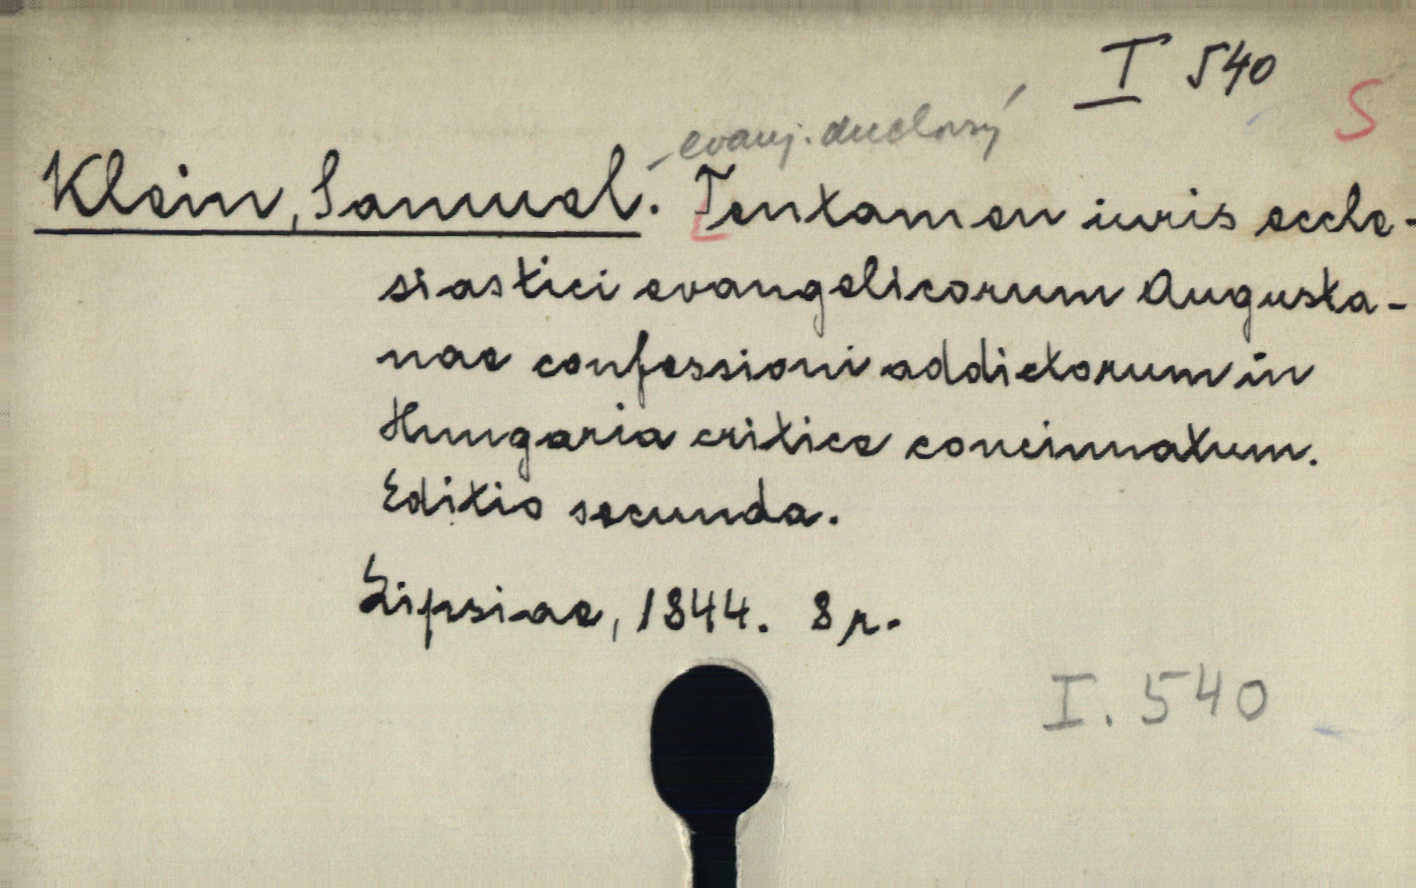 I 540
S
- evanj. duchovný
Klein, Samuel. Tentamen iuris eccle-
siastici evangelicorum Augusta-
nae confessioni addictorum in
Hungaria critice concinnatum.
Editio secunda.
Lipsiae, 1844. 8 r.
I. 540